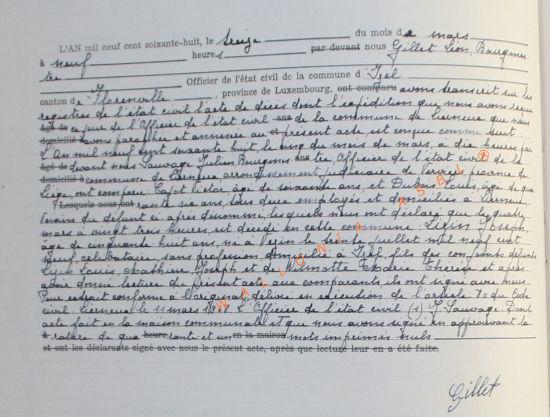 L'AN mil neuf cent soixante-huit, le seize du mois de mars
à neuf heures par devant nous Gillet Léon, Bourgmes
tre Officier de l'état civil de la commune d' Izel
canton de Florenville, province de Luxembourg, ont comparu avons transcrit sur les
registres de l'état civil l'acte de décès dont l'expédition que nous avons reçue
âgé de ce jour de l'Officier de l'état civil ans de la commune de Lierneux que nous
domicilié à avons paraphée et annexée au et présent acte, est conçue comme suit
L'An mil neuf cent soixante huit, le cinq du mois de mars, à dix heures par
âgé de devant nous Sauvage Julien, Bourgmes ans tre, Officier de l'état civil de la
domicilié à commune de Lierneux, arrondissement judiciaire de Verviers province de
Liège, ont comparu: Victor, âgé de soixante ans, et Louis, âgé de qua
Lesquels nous ont rante six ans, tous deux employés et domiciliés à Lierneux
du défunt ci après dénommé, lesquels nous ont déclaré que le quatre
mars à vingt trois heures, est décédé en cette commune: Joseph,
âgé de cinquante huit ans, né à le trente juillet mil neuf cent
neuf, célibataire, sans profession, domicilié à Izel, fils des conjoints défunts
Louis, Joseph et de Wilmotte Marie Thérèse et après
avoir donné lecture du présent acte aux comparants, ils ont signé avec nous.
Pour extrait conforme à l'original délivré en exécution de l'article 80 du Code
civil. Lierneux le 11 mars L'Officier de l'état civil (s) Sauvage Dont
acte fait en la maison communale et que nous avons signé en approuvant la
à rature de qua heure rante et un en la maison mots imprimés nuls
et ont les déclarants signé avec nous le présent acte, après que lecture leur en a été faite.
Gillet
WALLONIA ASBL